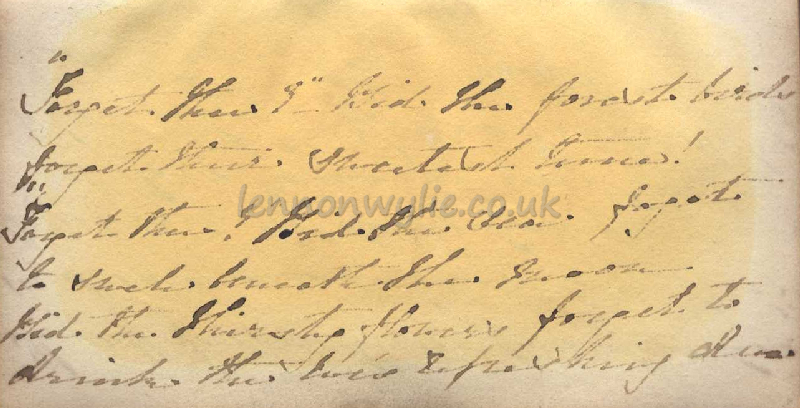 "Forget Thee?" Bid the forest birds
forget their sweetest tune!
lennonwylie.co.uk
"Forget thee? Bid the Sea forget
to swell beneath the moon
Bid the thirsty flowers forget to
drink the eve's refreshing dew.